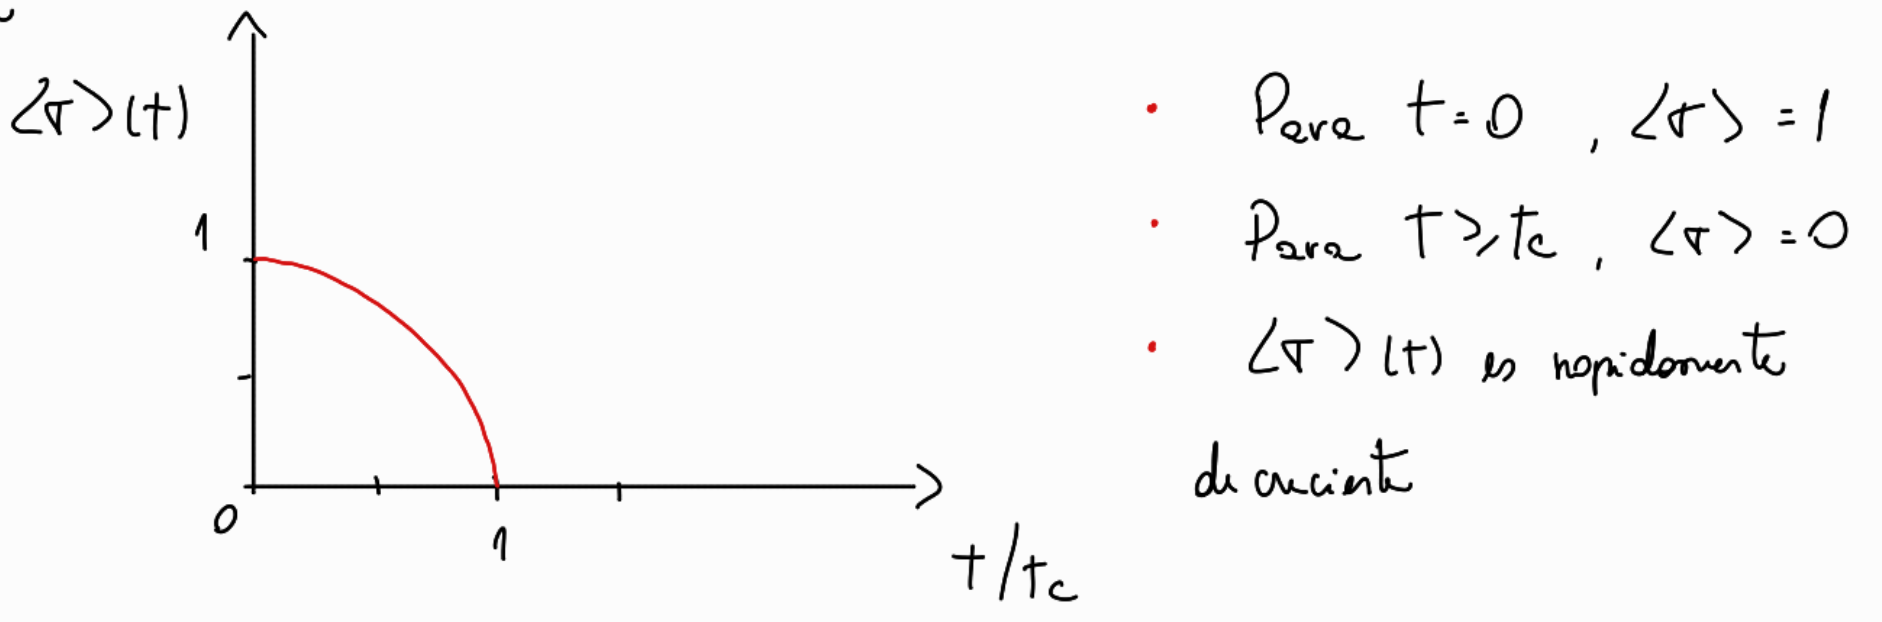 ⟨σ⟩(t)
1
0
1
t/tc
• Para t=0, ⟨σ⟩=1
• Para t⩾tc, ⟨σ⟩=0
• ⟨σ⟩(t) es rapidamente
decreciente